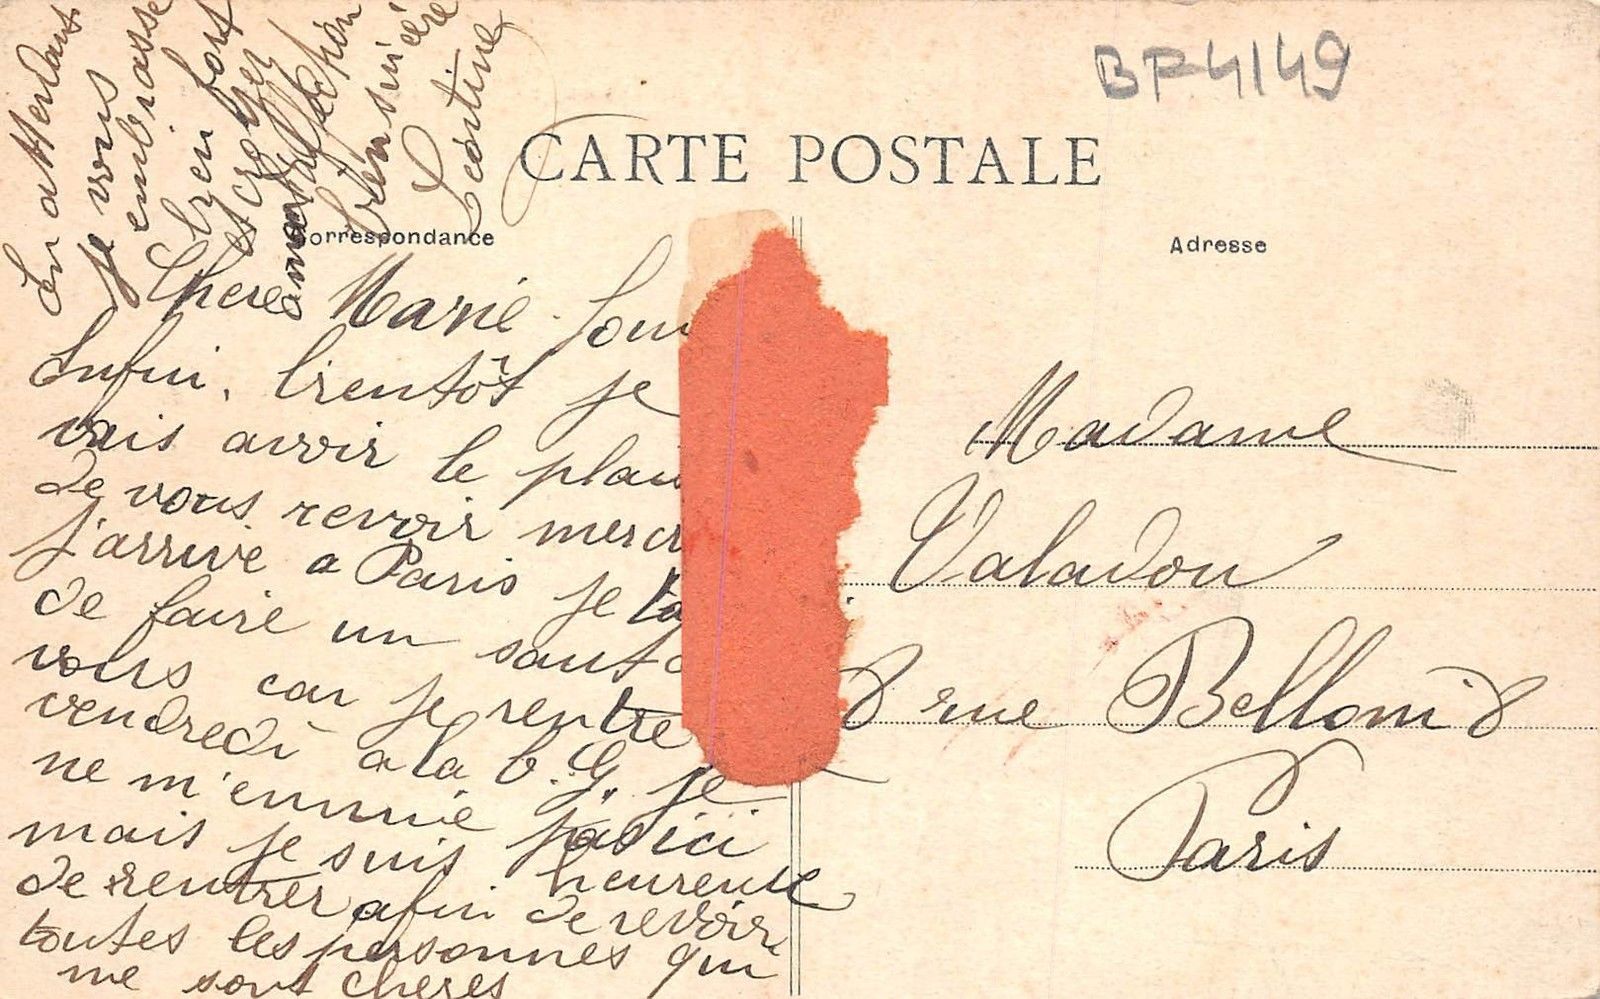 BP4149
CARTE POSTALE
Correspondance
Adresse
Chere Marie
Enfin, bientôt je
vais avoir le plai
de vous revoir merci
j'arrive a Paris je
de faire un saut
vous car je rentre
vendredi a la b. G. je
ne m'ennuie pas ici
mais je suis heureuse
de rentrer afin de revoir
toutes les personnes qui
me sont cheres
En attendant
je vous
embrasse
bien fort
et croyez
a mon affection
bien sincère
Madame
Valadou
8 rue Belloni 8
Paris